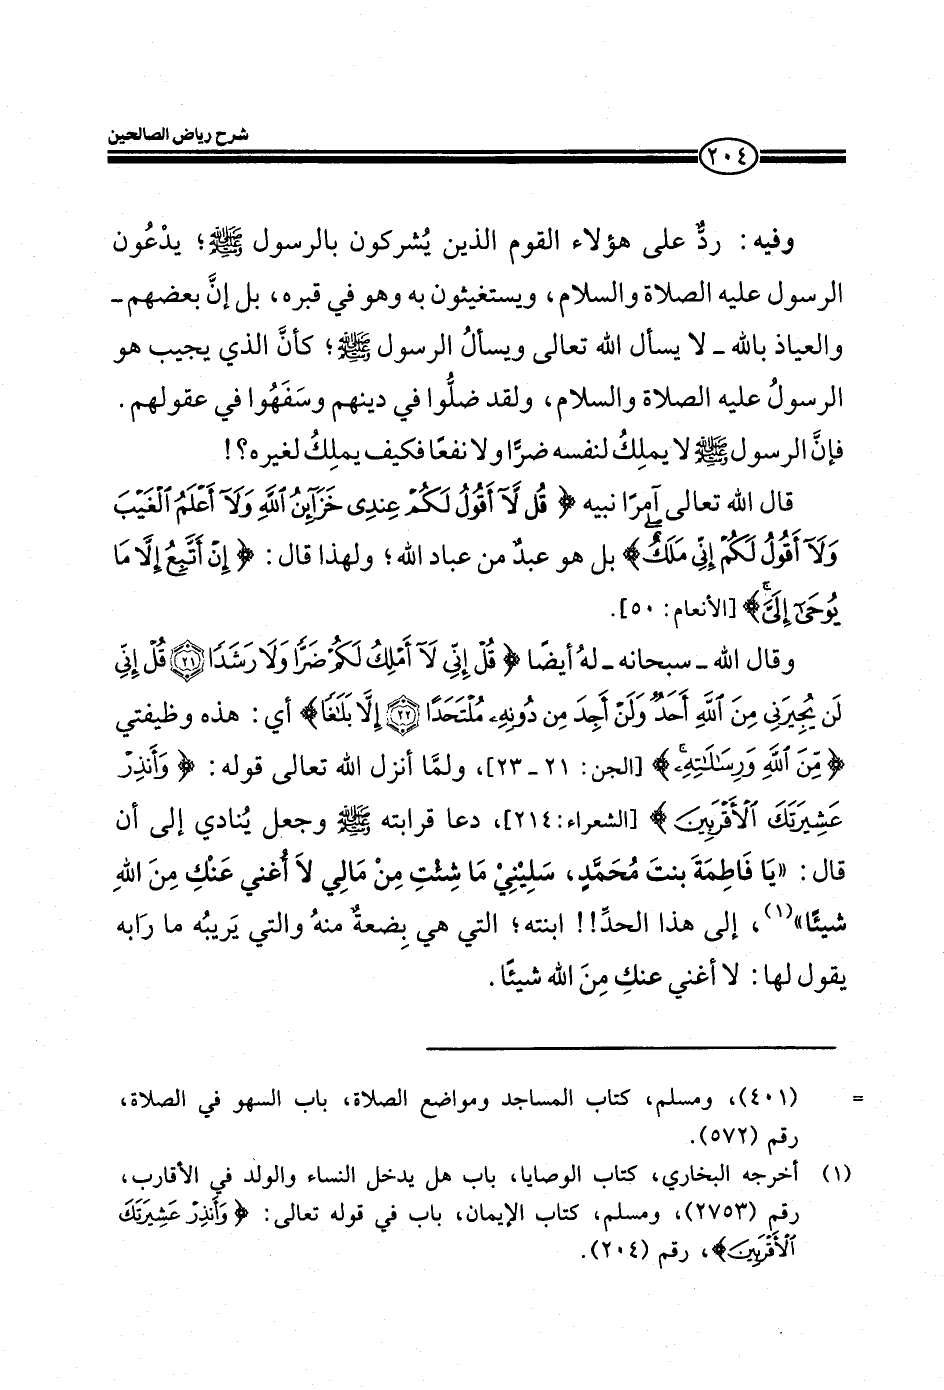 شرح رياض الصالحين
٢٠٤
وفيه: ردٌّ على هؤلاء القوم الذين يُشركون بالرسول ﷺ؛ يدْعُون
الرسول عليه الصلاة والسلام، ويستغيثون به وهو في قبره، بل إنَّ بعضهم ـ
والعياذ بالله ـ لا يسأل الله تعالى ويسألُ الرسول ﷺ؛ كأنَّ الذي يجيب هو
الرسولُ عليه الصلاة والسلام، ولقد ضلُّوا في دينهم وسَفَهُوا في عقولهم.
فإنَّ الرسول ﷺ لا يملِكُ لنفسه ضرًّا ولا نفعًا فكيف يملِكُ لغيره؟!
قال الله تعالى آمِرًا نبيه ﴿ قُل لَّآ أَقُولُ لَكُمْ عِندِى خَزَآئِنُ ٱللَّهِ وَلَآ أَعْلَمُ ٱلْغَيْبَ
وَلَآ أَقُولُ لَكُمْ إِنِّى مَلَكٌ ﴾ بل هو عبدٌ من عباد الله؛ ولهذا قال: ﴿ إِنْ أَتَّبِعُ إِلَّا مَا
يُوحَىٰٓ إِلَىَّ ﴾ [الأنعام: ٥٠].
وقال الله ـ سبحانه ـ لهُ أيضًا ﴿ قُلْ إِنِّى لَآ أَمْلِكُ لَكُمْ ضَرًّا وَلَا رَشَدًا ٢١ قُلْ إِنِّى
لَن يُجِيرَنِى مِنَ ٱللَّهِ أَحَدٌ وَلَنْ أَجِدَ مِن دُونِهِۦ مُلْتَحَدًا ٢٢ إِلَّا بَلَـٰغًا ﴾ أي: هذه وظيفتي
﴿ مِّنَ ٱللَّهِ وَرِسَـٰلَـٰتِهِۦ ﴾ [الجن: ٢١ ـ ٢٣]، ولمَّا أنزل الله تعالى قوله: ﴿ وَأَنذِرْ
عَشِيرَتَكَ ٱلْأَقْرَبِينَ ﴾ [الشعراء: ٢١٤]، دعا قرابته ﷺ وجعل يُنادي إلى أن
قال: «يَا فَاطِمَةَ بنتَ مُحَمَّدٍ، سَلِينِيْ مَا شِئْتِ مِنْ مَالِي لاَ أُغني عَنْكِ مِنَ اللهِ
شيئًا»(١)، إلى هذا الحدِّ!! ابنته؛ التي هي بِضعةٌ منهُ والتي يَريبُه ما رَابه
يقول لها: لا أغني عنكِ مِنَ الله شيئًا.
= (٤٠١)، ومسلم، كتاب المساجد ومواضع الصلاة، باب السهو في الصلاة،
رقم (٥٧٢).
(١) أخرجه البخاري، كتاب الوصايا، باب هل يدخل النساء والولد في الأقارب،
رقم (٢٧٥٣)، ومسلم، كتاب الإيمان، باب في قوله تعالى: ﴿ وَأَنذِرْ عَشِيرَتَكَ
ٱلْأَقْرَبِينَ ﴾، رقم (٢٠٤).